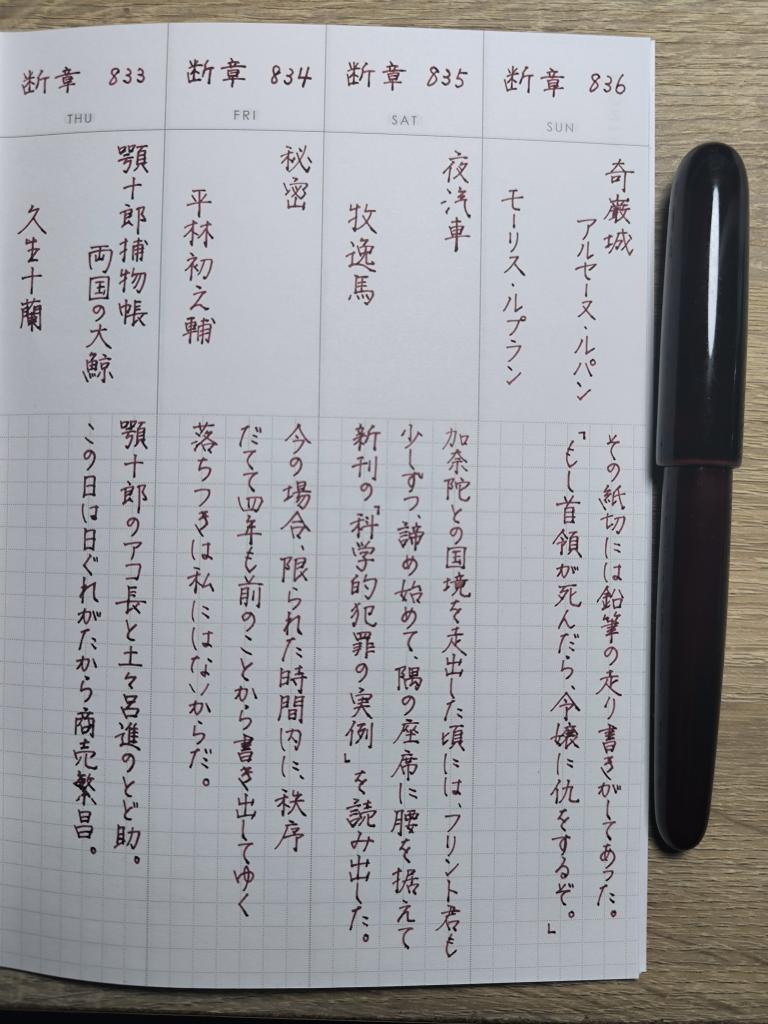 断章 833
THU
顎十郎捕物帳
両国の大鯨
久生十蘭
顎十郎のアコ長と土々呂進のとど助。
この日は日ぐれがたから商売繁昌。
断章 834
FRI
秘密
平林初之輔
今の場合、限られた時間内に、秩序
だてて四年も前のことから書き出してゆく
落ちつきは私にはないからだ。
断章 835
SAT
夜汽車
牧逸馬
加奈陀との国境を走出した頃には、フリント君も
少しずつ、諦め始めて、隅の座席に腰を据えて
新刊の「科学的犯罪の実例」を読み出した。
断章 836
SUN
奇巌城
アルセーヌ・ルパン
モーリス・ルブラン
その紙切には鉛筆の走り書きがしてあった。
「もし首領が死んだら、令嬢に仇をするぞ。」